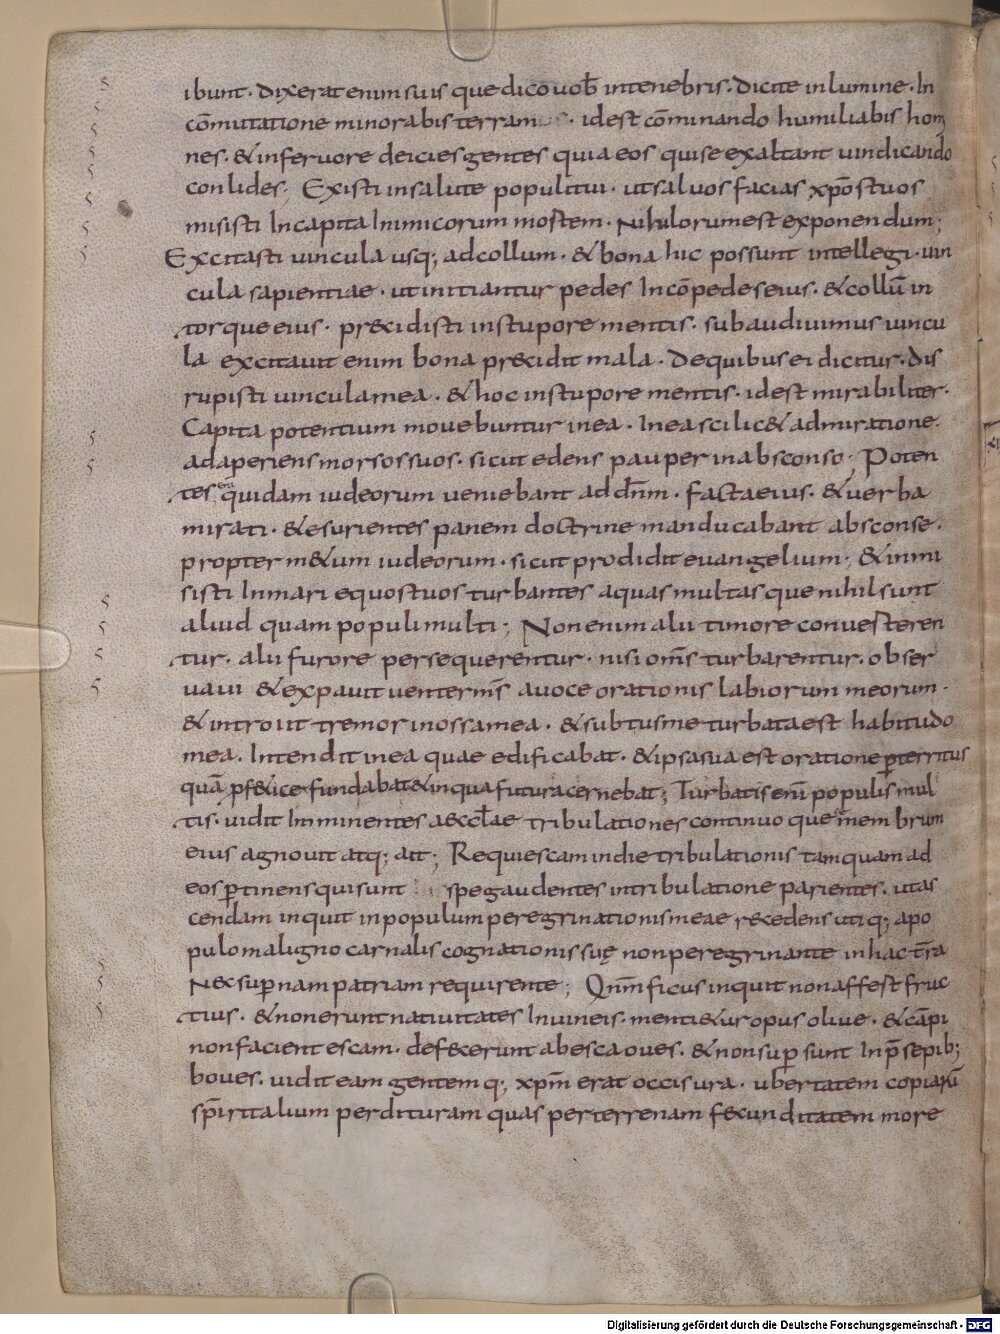 ibunt · dixerat enim suis que dico uob̄ intenebris · dicite in lumine · In
cōmutatione minorabis terram · idest cōminando humiliabis hom
nes · & infuruore deicies gentes quia eos qui se exaltant uindicando
conlides · Existi insalute populi tui · ut saluos facias xp̄os tuos
misisti In capita Inimicorum mortem · Nihil horum est exponendum ;
Excitasti uincula usq; ad collum · & bona hic possunt intellegi · uin
cula sapientiae · ut initiantur pedes In cōpedes eius · & collū in
torque eius · precidisti in stupore mentis · subaudiuimus uincu
la excitauit enim bona precidit mala · De quibus ei dicitur · dis
rupisti uincula mea · & hoc in stupore mentis · idest mirabiliter ·
Capita potentium mouebuntur in ea · In ea scilic& admiratione ·
adaperiens morsos suos · sicut edens pauper in absconso · Poten
tes enī quidam iudeorum ueniebant ad dn̄m · facta eius · & uerba
mirati · & esurientes panem doctrine manducabant absconse ·
propter m&um iudeorum · sicut prodidit euangelium ; & inmi
sisti In mari equos tuos turbantes aquas multas que nihil sunt
aliud quam populi multi ; Non enim alii timore conuerteren
tur · alii furore persequerentur · nisi om̄s turbarentur · obser
uaui & expauit uenter m̄s a uoce orationis labiorum meorum ·
& introiit tremor in ossa mea · & subtus me turbata est habitudo
mea · Intendit in ea quae edificabat · & ipsa sua est oratione p̄territus
quā pf&ice fundabat & in qua futura cernebat ; Turbatis enī populis mul
tis · uidit Imminentes aeccl̄ae tribulationes continuo que membrum
eius agnouit atq; ait ; Requiescam in die tribulationis tamquam ad
eos p̄tinens qui sunt spe gaudentes in tribulatione patientes · ut as
cendam inquit in populum peregrinationis meae recedens utiq; a po
pulo maligno carnalis cognationis suę non peregrinante in hac tr̄a
Nec sup̄nam patriam requirente ; Qn̄m ficus inquit non affest fruc
tius · & non erunt natiuitates In uineis · menti&ur opus oliue · & cāpi
non facient escam · defecerunt ab esca oues · & non sup̄ sunt In p̄sepib;
boues · uidit eam gentem q; xp̄m erat occisura · ubertatem copiarū
sp̄iritalium perdituram quas per terrenam fecunditatem more